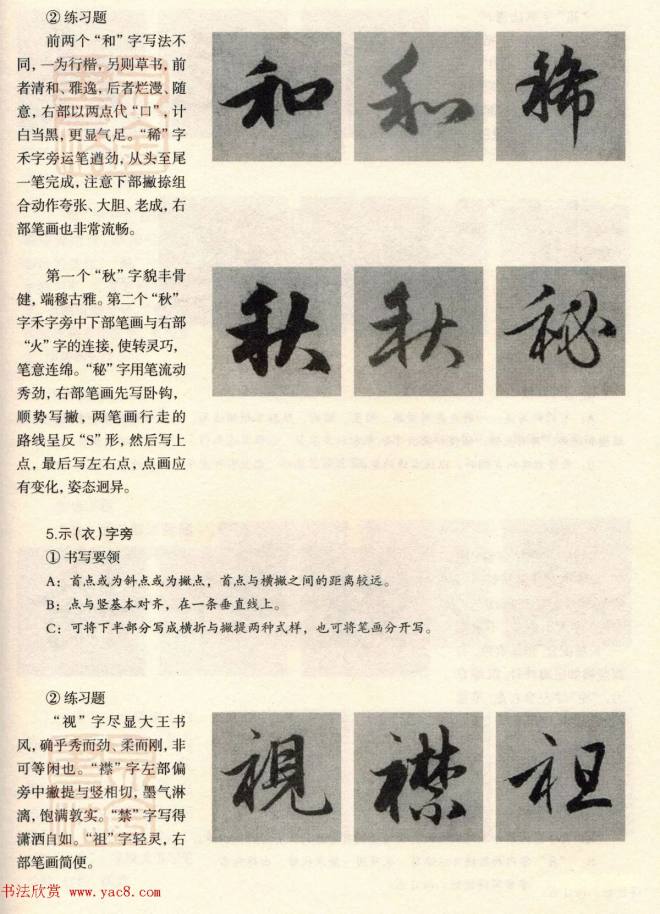 ② 练习题
前两个“和”字写法不
同，一为行楷，另则草书，前
者清和、雅逸，后者烂漫、随
意，右部以两点代“口”，计
白当黑，更显气足。“稀”字
禾字旁运笔遒劲，从头至尾
一笔完成，注意下部撇捺组
合动作夸张、大胆、老成，右
部笔画也非常流畅。
和 和 稀
第一个“秋”字貌丰骨
健，端穆古雅。第二个“秋”
字禾字旁中下部笔画与右部
“火”字的连接，使转灵巧，
笔意连绵。“秘”字用笔流动
秀劲，右部笔画先写卧钩，
顺势写撇，两笔画行走的
路线呈反“S”形，然后写上
点，最后写左右点，点画应
有变化，姿态迥异。
秋 秋 秘
5.示（衣）字旁
① 书写要领
A：首点或为斜点或为撇点，首点与横撇之间的距离较远。
B：点与竖基本对齐，在一条垂直线上。
C：可将下半部分写成横折与撇提两种式样，也可将笔画分开写。
② 练习题
“视”字尽显大王书
风，确乎秀而劲、柔而刚，非
可等闲也。“襟”字左部偏
旁中撇提与竖相切，墨气淋
漓，饱满敦实。“禁”字写得
潇洒自如。“祖”字轻灵，右
部笔画简便。
視 襟 祖
书法欣赏 www.yac8.com